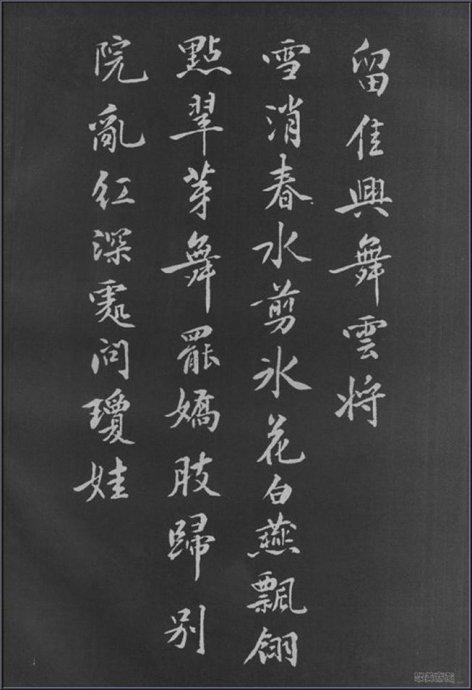 留佳興舞雲将
雪消春水剪氷花白燕飄翎
點翠芽舞罷嬌肢歸别
院亂紅深處问瓊娃